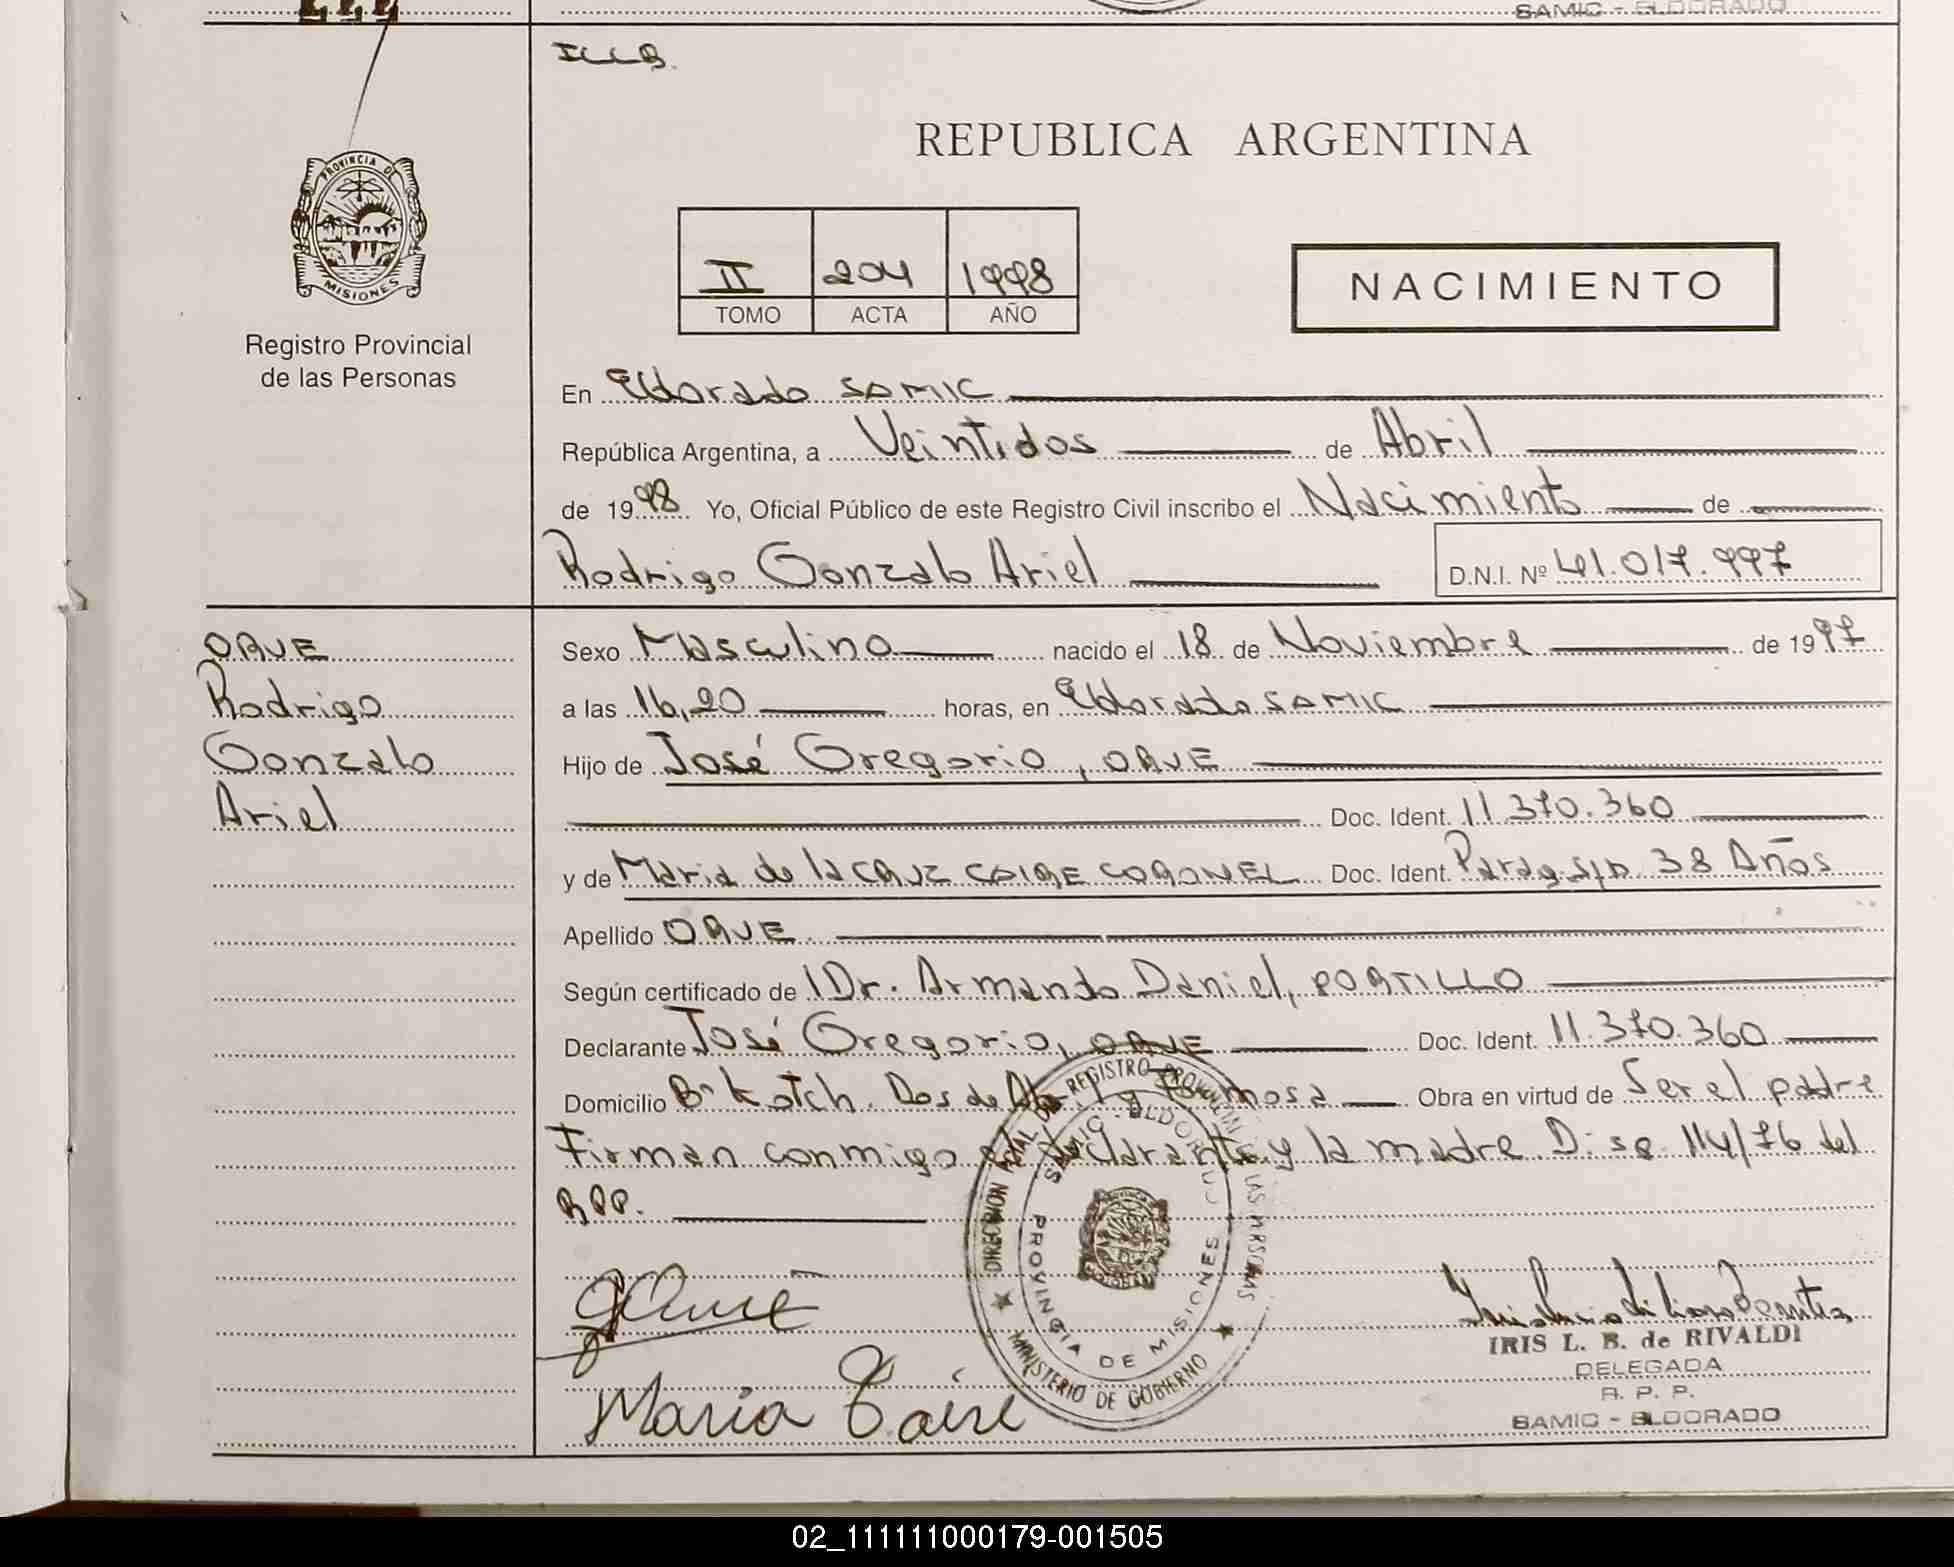 SAMIC - ELDORADO
ILLB.
REPUBLICA ARGENTINA
PROVINCIA DE
MISIONES
Registro Provincial
de las Personas
II 204 1998
TOMO ACTA AÑO
NACIMIENTO
En Eldorado SAMIC
República Argentina, a Veintidos de Abril
de 1998 Yo, Oficial Público de este Registro Civil inscribo el Nacimiento de
Rodrigo Gonzalo Ariel D.N.I. Nº 41.017.997
ORUE
Rodrigo
Gonzalo
Ariel
Sexo Masculino nacido el 18 de Noviembre de 1997
a las 16,20 horas, en Eldorado SAMIC
Hijo de José Gregorio, ORUE
Doc. Ident. 11.370.360
y de Maria de la CRUZ CAIRE CORONEL Doc. Ident. Parag. S/D. 38 Años
Apellido ORUE
Según certificado de Dr. Armando Daniel, PORTILLO
Declarante José Gregorio, ORUE Doc. Ident. 11.370.360
Domicilio Bº Kotch. Dos de Abril y Formosa Obra en virtud de Ser el padre
Firman conmigo el declarante y la madre. Disp. 114/76 del
RPP.
DIRECCION GRAL. DE REGISTRO PROVINCIAL DE LAS PERSONAS
SAMIC - ELDORADO
PROVINCIA DE MISIONES
MINISTERIO DE GOBIERNO
Maria Caire
IRIS L. B. de RIVALDI
DELEGADA
R. P. P.
SAMIC - ELDORADO
02_111111000179-001505